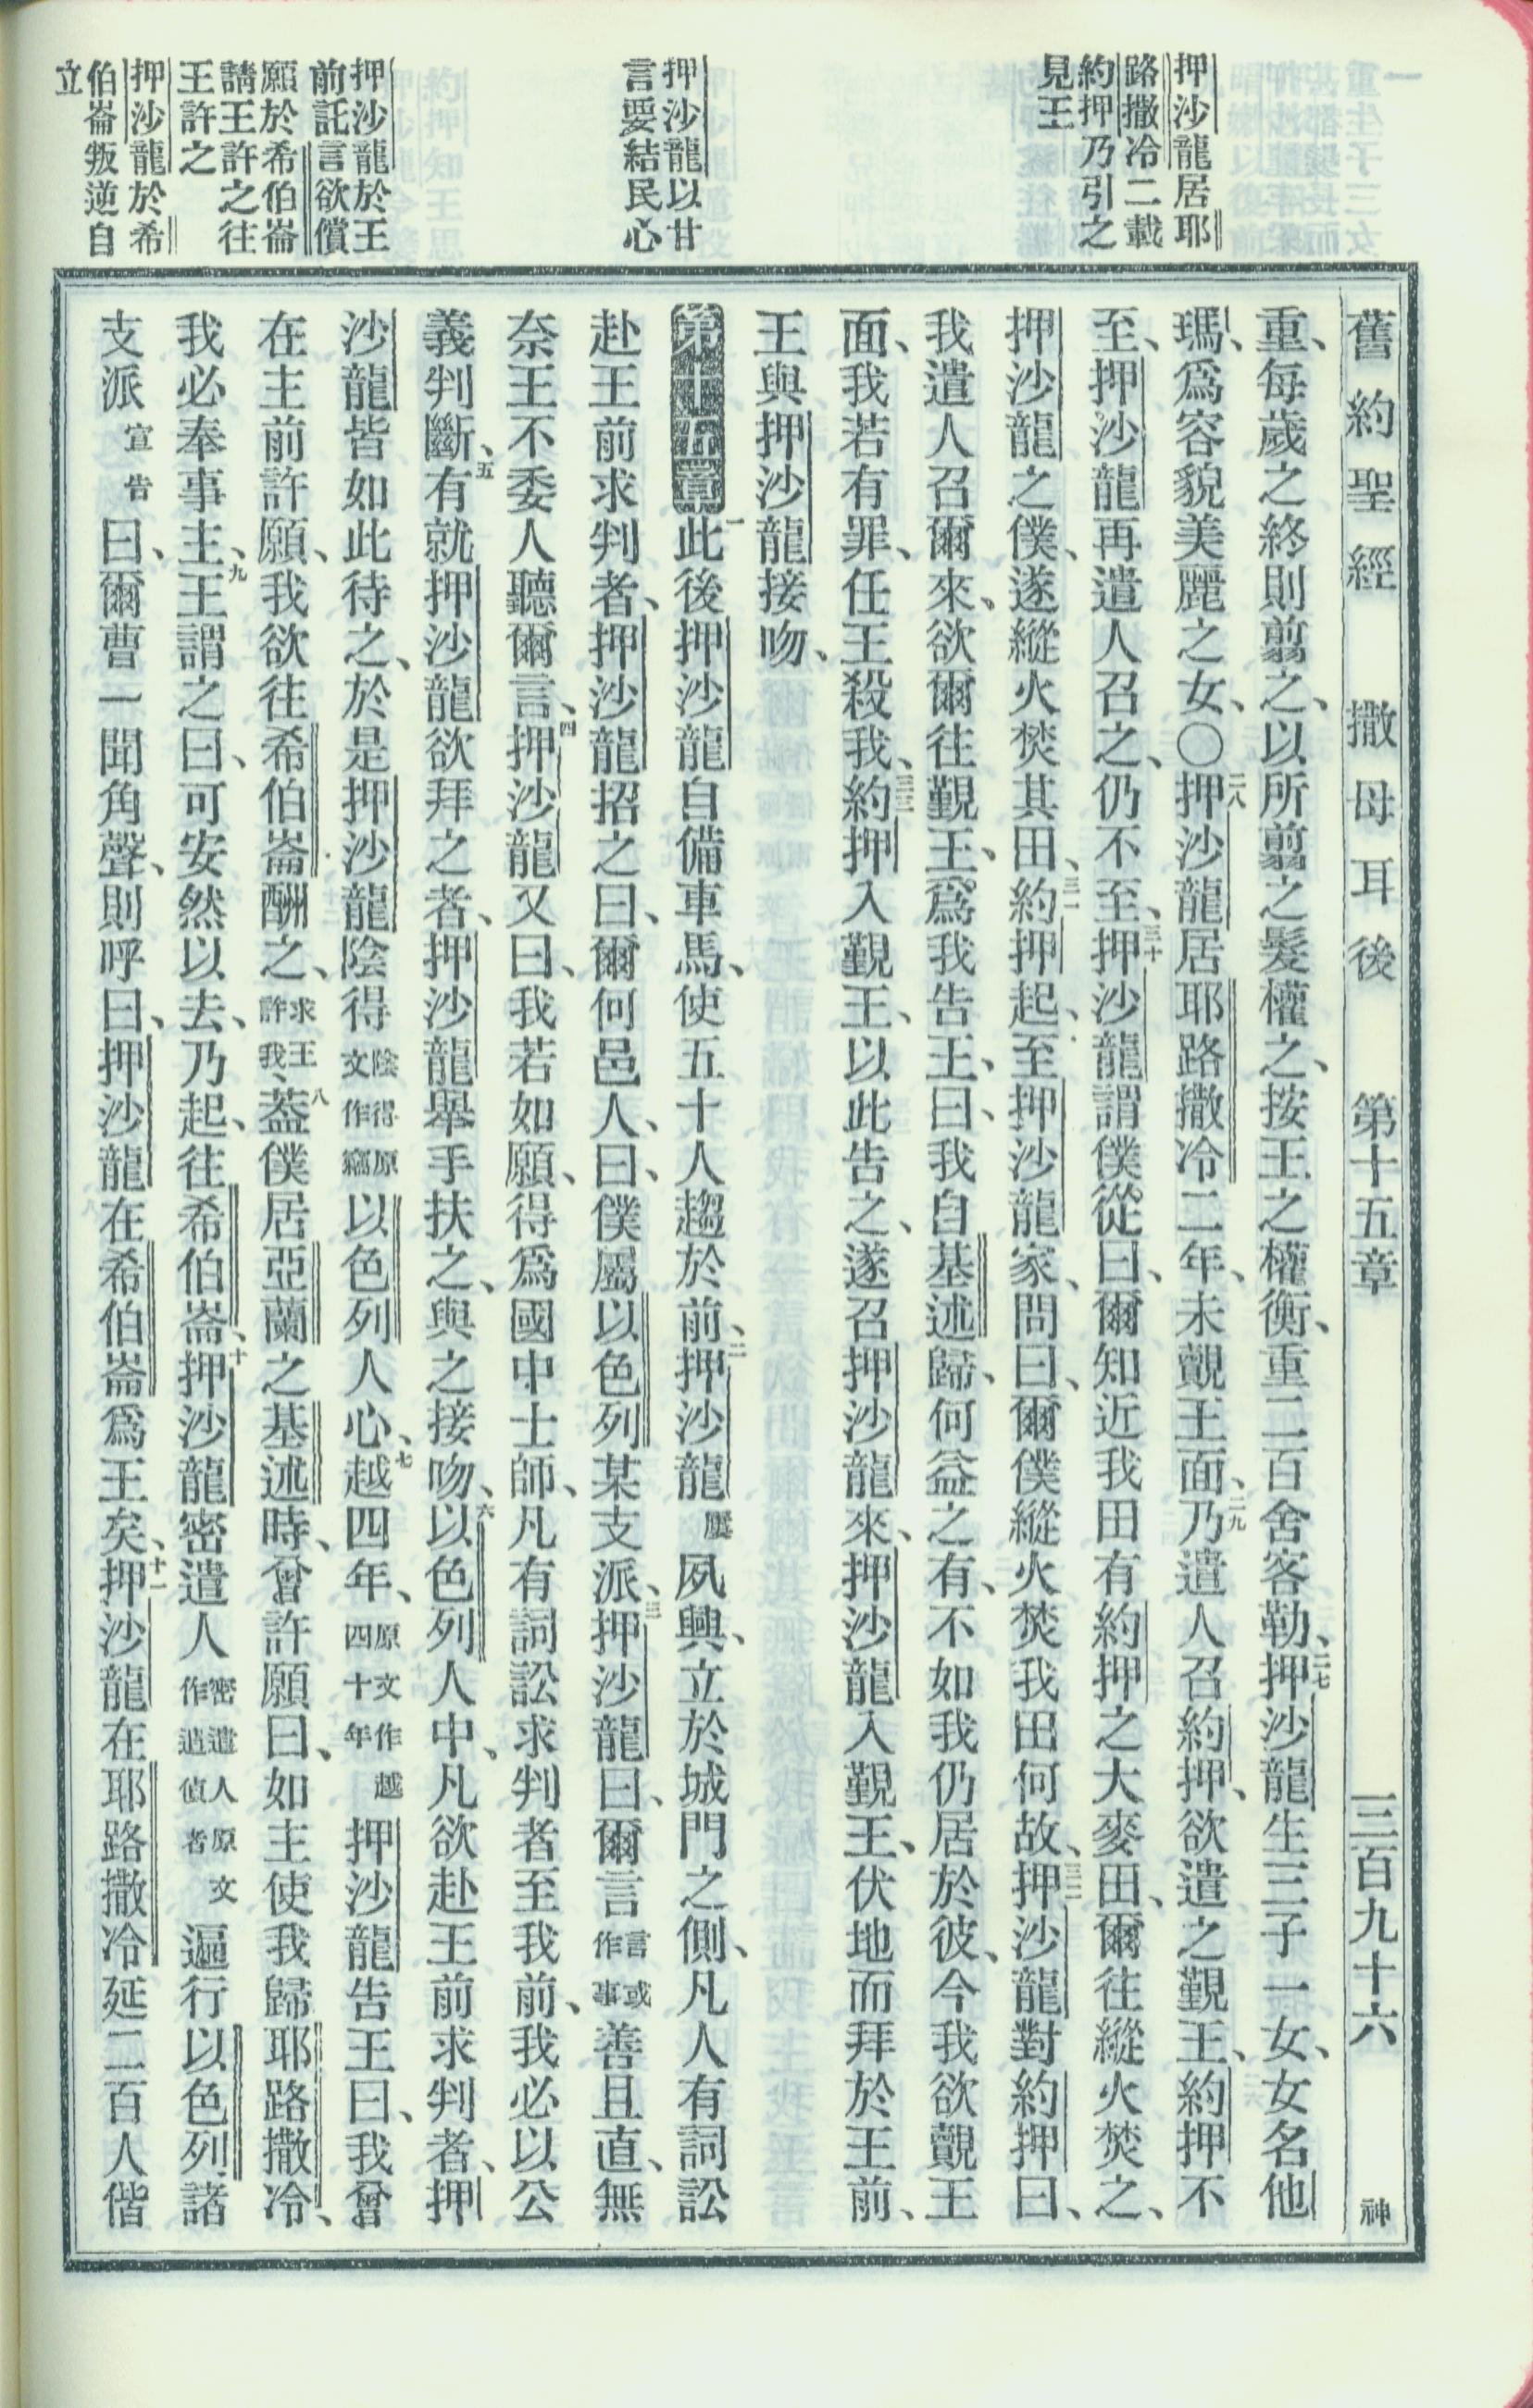 舊約聖經　撒母耳後　第十五章　三百九十六　神
押沙龍居耶
路撒冷二載
約押乃引之
見王
押沙龍以甘
言要結民心
押沙龍於王
前託言欲償
願於希伯崙
請王許之往
王許之
押沙龍於希
伯崙叛逆自
立
重、每歲之終則翦之、以所翦之髮權之、按王之權衡、重二百舍客勒、二七押沙龍生三子一女、女名他
瑪、爲容貌美麗之女、〇二八押沙龍居耶路撒冷二年、未覿王面、二九乃遣人召約押、欲遣之覲王、約押不
至、押沙龍再遣人召之、仍不至、三十押沙龍謂僕從曰、爾知近我田有約押之大麥田、爾往縱火焚之、
押沙龍之僕、遂縱火焚其田、三一約押起、至押沙龍家、問曰、爾僕縱火焚我田何故、三二押沙龍對約押曰、
我遣人召爾來、欲爾往覲王、爲我告王、曰、我自基述歸、何益之有、不如我仍居於彼、今我欲覿王
面、我若有罪、任王殺我、三三約押入覲王、以此告之、遂召押沙龍來、押沙龍入覲王、伏地而拜於王前、
王與押沙龍接吻、
第十五章一此後押沙龍自備車馬、使五十人趨於前、二押沙龍屢夙興、立於城門之側、凡人有詞訟
赴王前求判者、押沙龍招之曰、爾何邑人、曰、僕屬以色列某支派、三押沙龍曰、爾言言或作事善且直、無
奈王不委人聽爾言、四押沙龍又曰、我若如願、得爲國中士師、凡有詞訟求判者至我前、我必以公
義判斷、五有就押沙龍欲拜之者、押沙龍舉手扶之、與之接吻、六以色列人中、凡欲赴王前求判者、押
沙龍皆如此待之、於是押沙龍陰得陰得原文作竊以色列人心、七越四年、原文作越四十年押沙龍告王曰、我曾
在主前許願、我欲往希伯崙酬之、求王許我、八蓋僕居亞蘭之基述時、曾許願曰、如主使我歸耶路撒冷、
我必奉事主、九王謂之曰、可安然以去、乃起、往希伯崙、十押沙龍密遣人密遣人原文作遣偵者遍行以色列諸
支派宣告曰、爾曹一聞角聲、則呼曰、押沙龍在希伯崙爲王矣、十一押沙龍在耶路撒冷延二百人偕